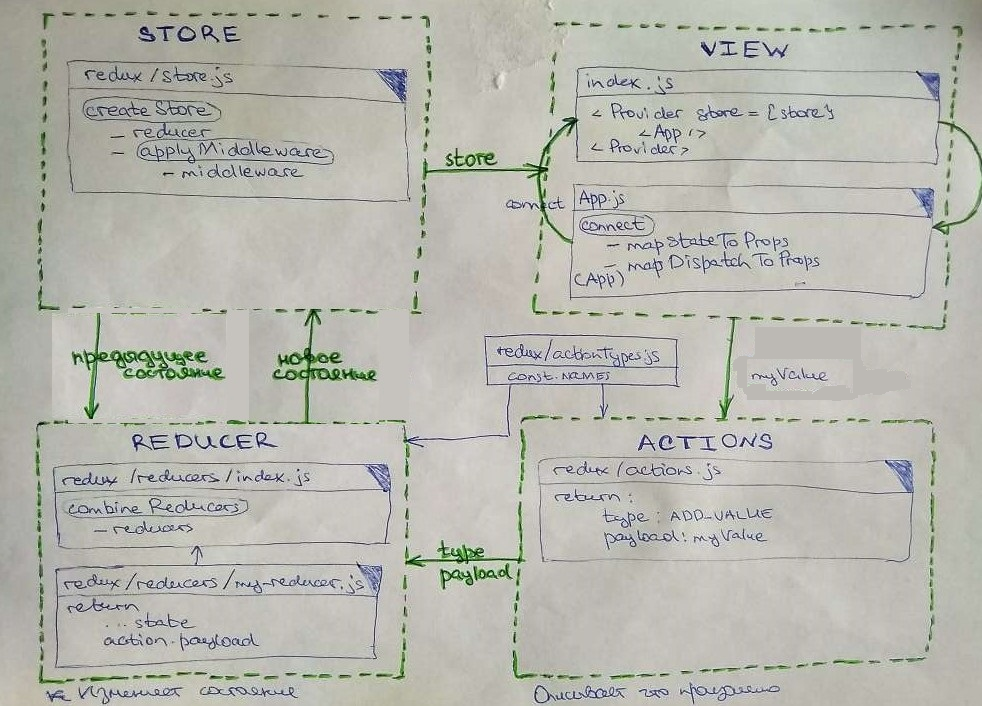 STORE
redux/store.js
createStore
- reducer
- applyMiddleware
- middleware
store
VIEW
index.js
< Provider store = {store}
<App />
< Provider>
connect
App.js
connect
- mapStateToProps
- mapDispatchToProps
(App)
предыдущее
состояние
новое
состояние
redux/actionTypes.js
const.NAMES
myValue
REDUCER
redux/reducers/index.js
combineReducers
- reducers
redux/reducers/my-reducer.js
return
...state
action.payload
Изменяет состояние
type
payload
ACTIONS
redux/actions.js
return:
type: ADD_VALUE
payload: myValue
Описывает что